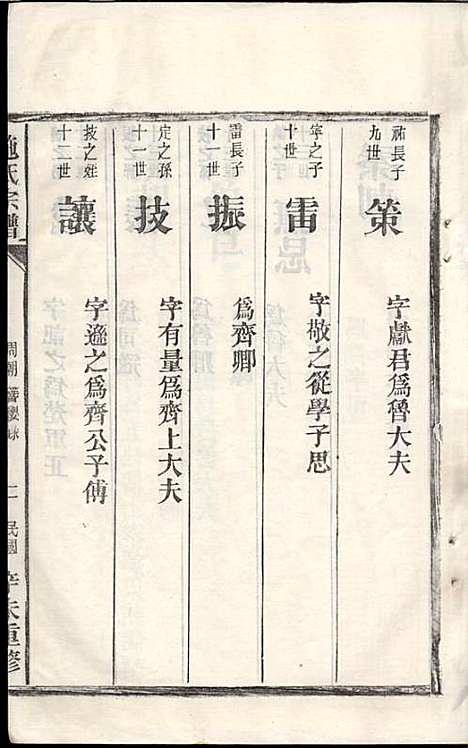 祔長子
九世
策
字獻君爲魯大夫
寧之子
十世
雷
字敬之從學子思
雷長子
十一世
振
爲齊卿
定之孫
十一世
技
字有量爲齊上大夫
技之姪
十二世
讓
字遜之爲齊公子傅
施氏宗譜
周朝
二
民國
辛未重修